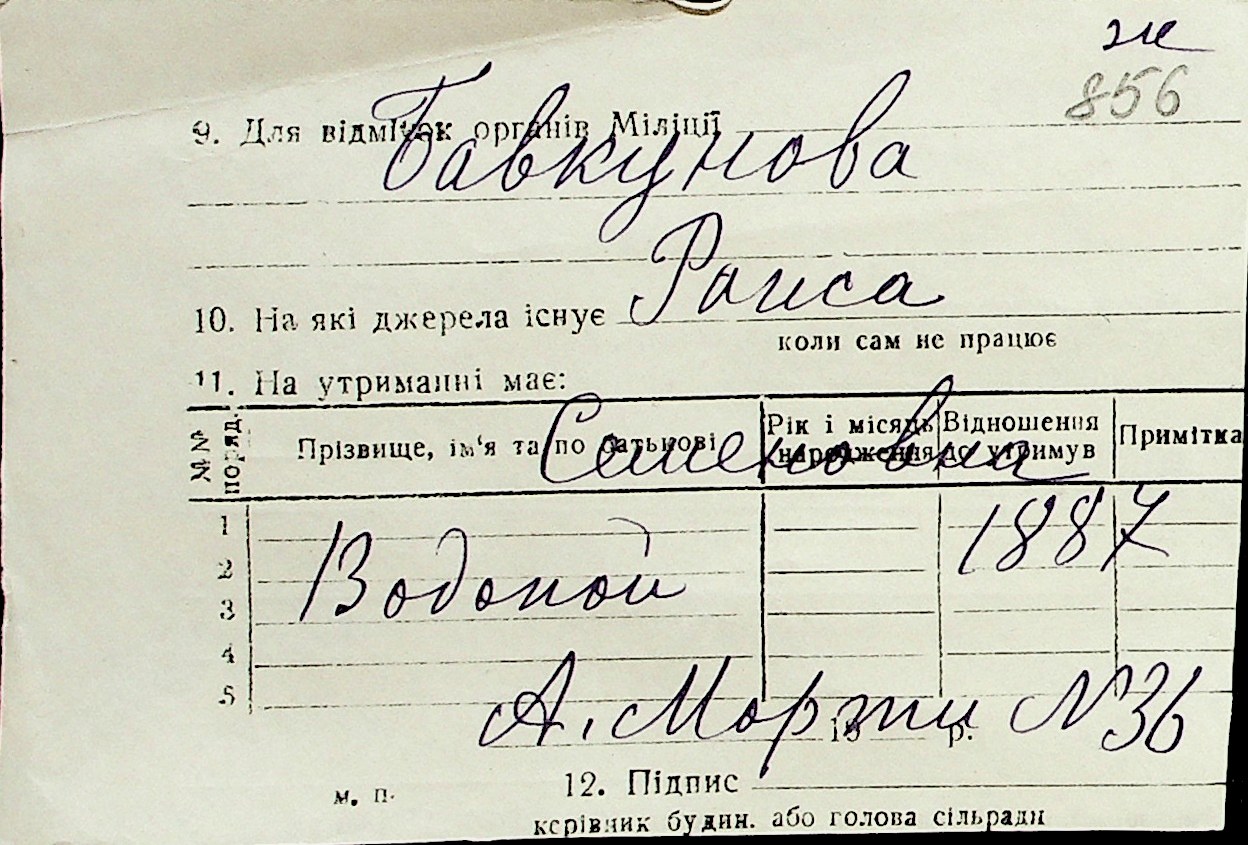 ж
856
9. Для відміток органів Міліції
Бавкунова
Раиса
10. На які джерела існує
коли сам не працює
11. На утриманні має:
Семеновна
№№ поряд. Прізвище, ім'я та по батькові Рік і місяць народження Відношення до утримув Примітка
1
1887
2
Водопой
3
4
5
А. Марти N 36
19 р.
м. п.
12. Підпис
керівник будин. або голова сільради